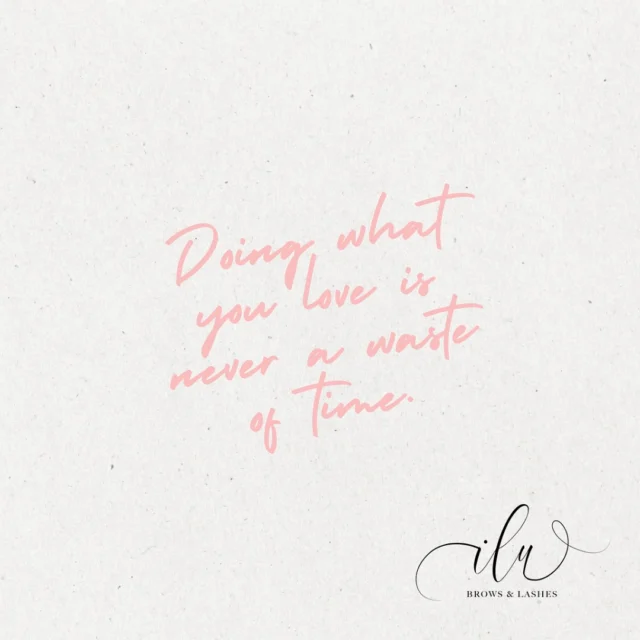 Doing what
you love is
never a waste
of time.
ilu
BROWS & LASHES